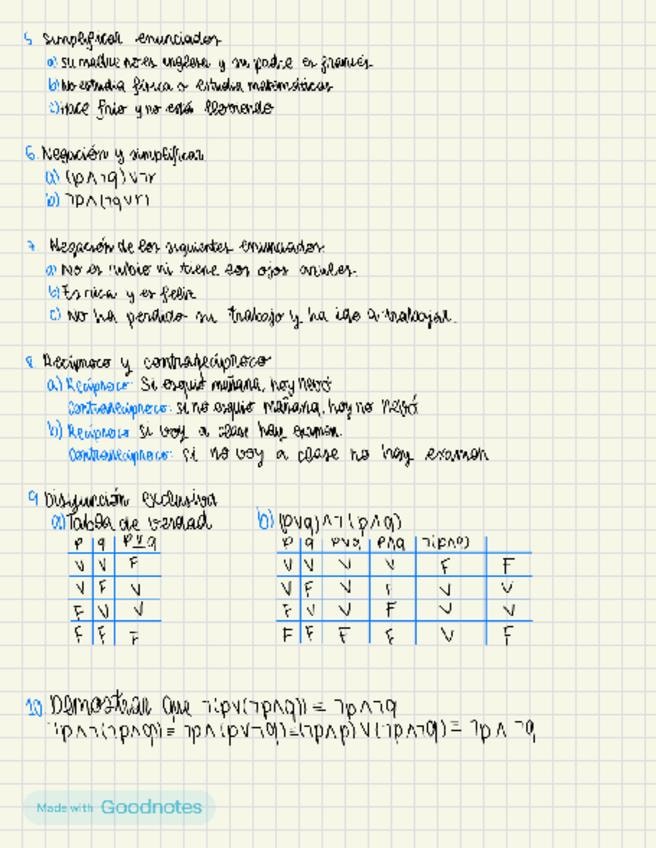 5. Simplificar enunciados
a) su madre no es inglesa y su padre es francés
b) No estudia física o estudia matemáticas
c) Hace frío y no está lloviendo
6. Negación y simplificar
a) (p∧¬q)∨¬r
b) ¬p∧(¬q∨r)
7. Negación de los siguientes enunciados
a) No es rubio ni tiene los ojos azules.
b) Es rica y es feliz
c) No ha perdido su trabajo y ha ido a trabajar.
8. Recíproco y contrarecíproco
a) Recíproco: Si esquío mañana, hoy nevó
Contrarecíproco: si no esquío mañana, hoy no nevó
b) Recíproco: si voy a clase hay examen.
Contrarecíproco: si no voy a clase no hay examen
9 Disyunción exclusiva
a) Tabla de verdad b) (p∨q)∧¬(p∧q)
p q p⊻q p q p∨q p∧q ¬(p∧q)
V V F V V V V F F
V F V V F V F V V
F V V F V V F V V
F F F F F F F V F
10. Demostrar que ¬(p∨(¬p∧q)) ≡ ¬p∧¬q
¬p∧¬(¬p∧q) ≡ ¬p∧(p∨¬q) ≡ (¬p∧p)∨(¬p∧¬q) ≡ ¬p∧¬q
Made with Goodnotes